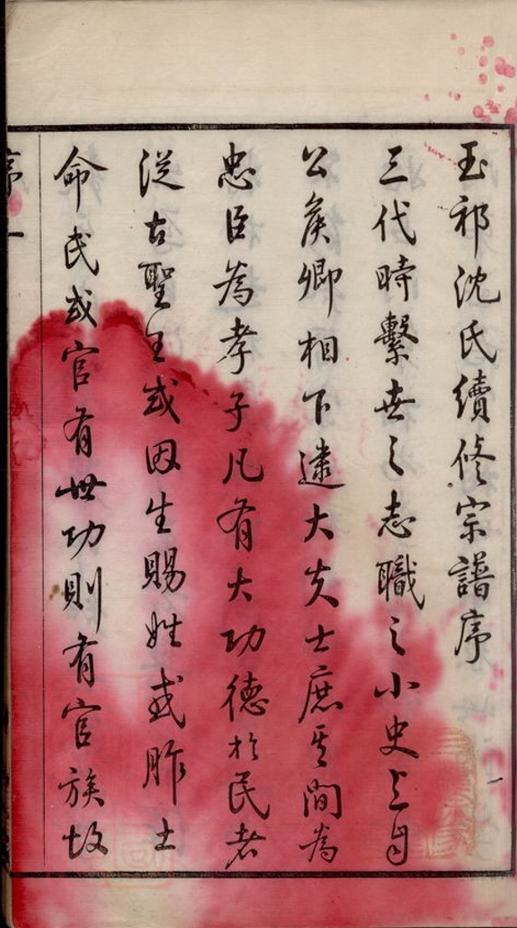 玉祁沈氏續修宗譜序
三代時繫世之志職之小史上自
公矦卿相下逮大夫士庶其間為
忠臣為孝子凡有大功德於民者
從古聖王或因生賜姓或胙土
命氏或官有世功則有官族故
序
一